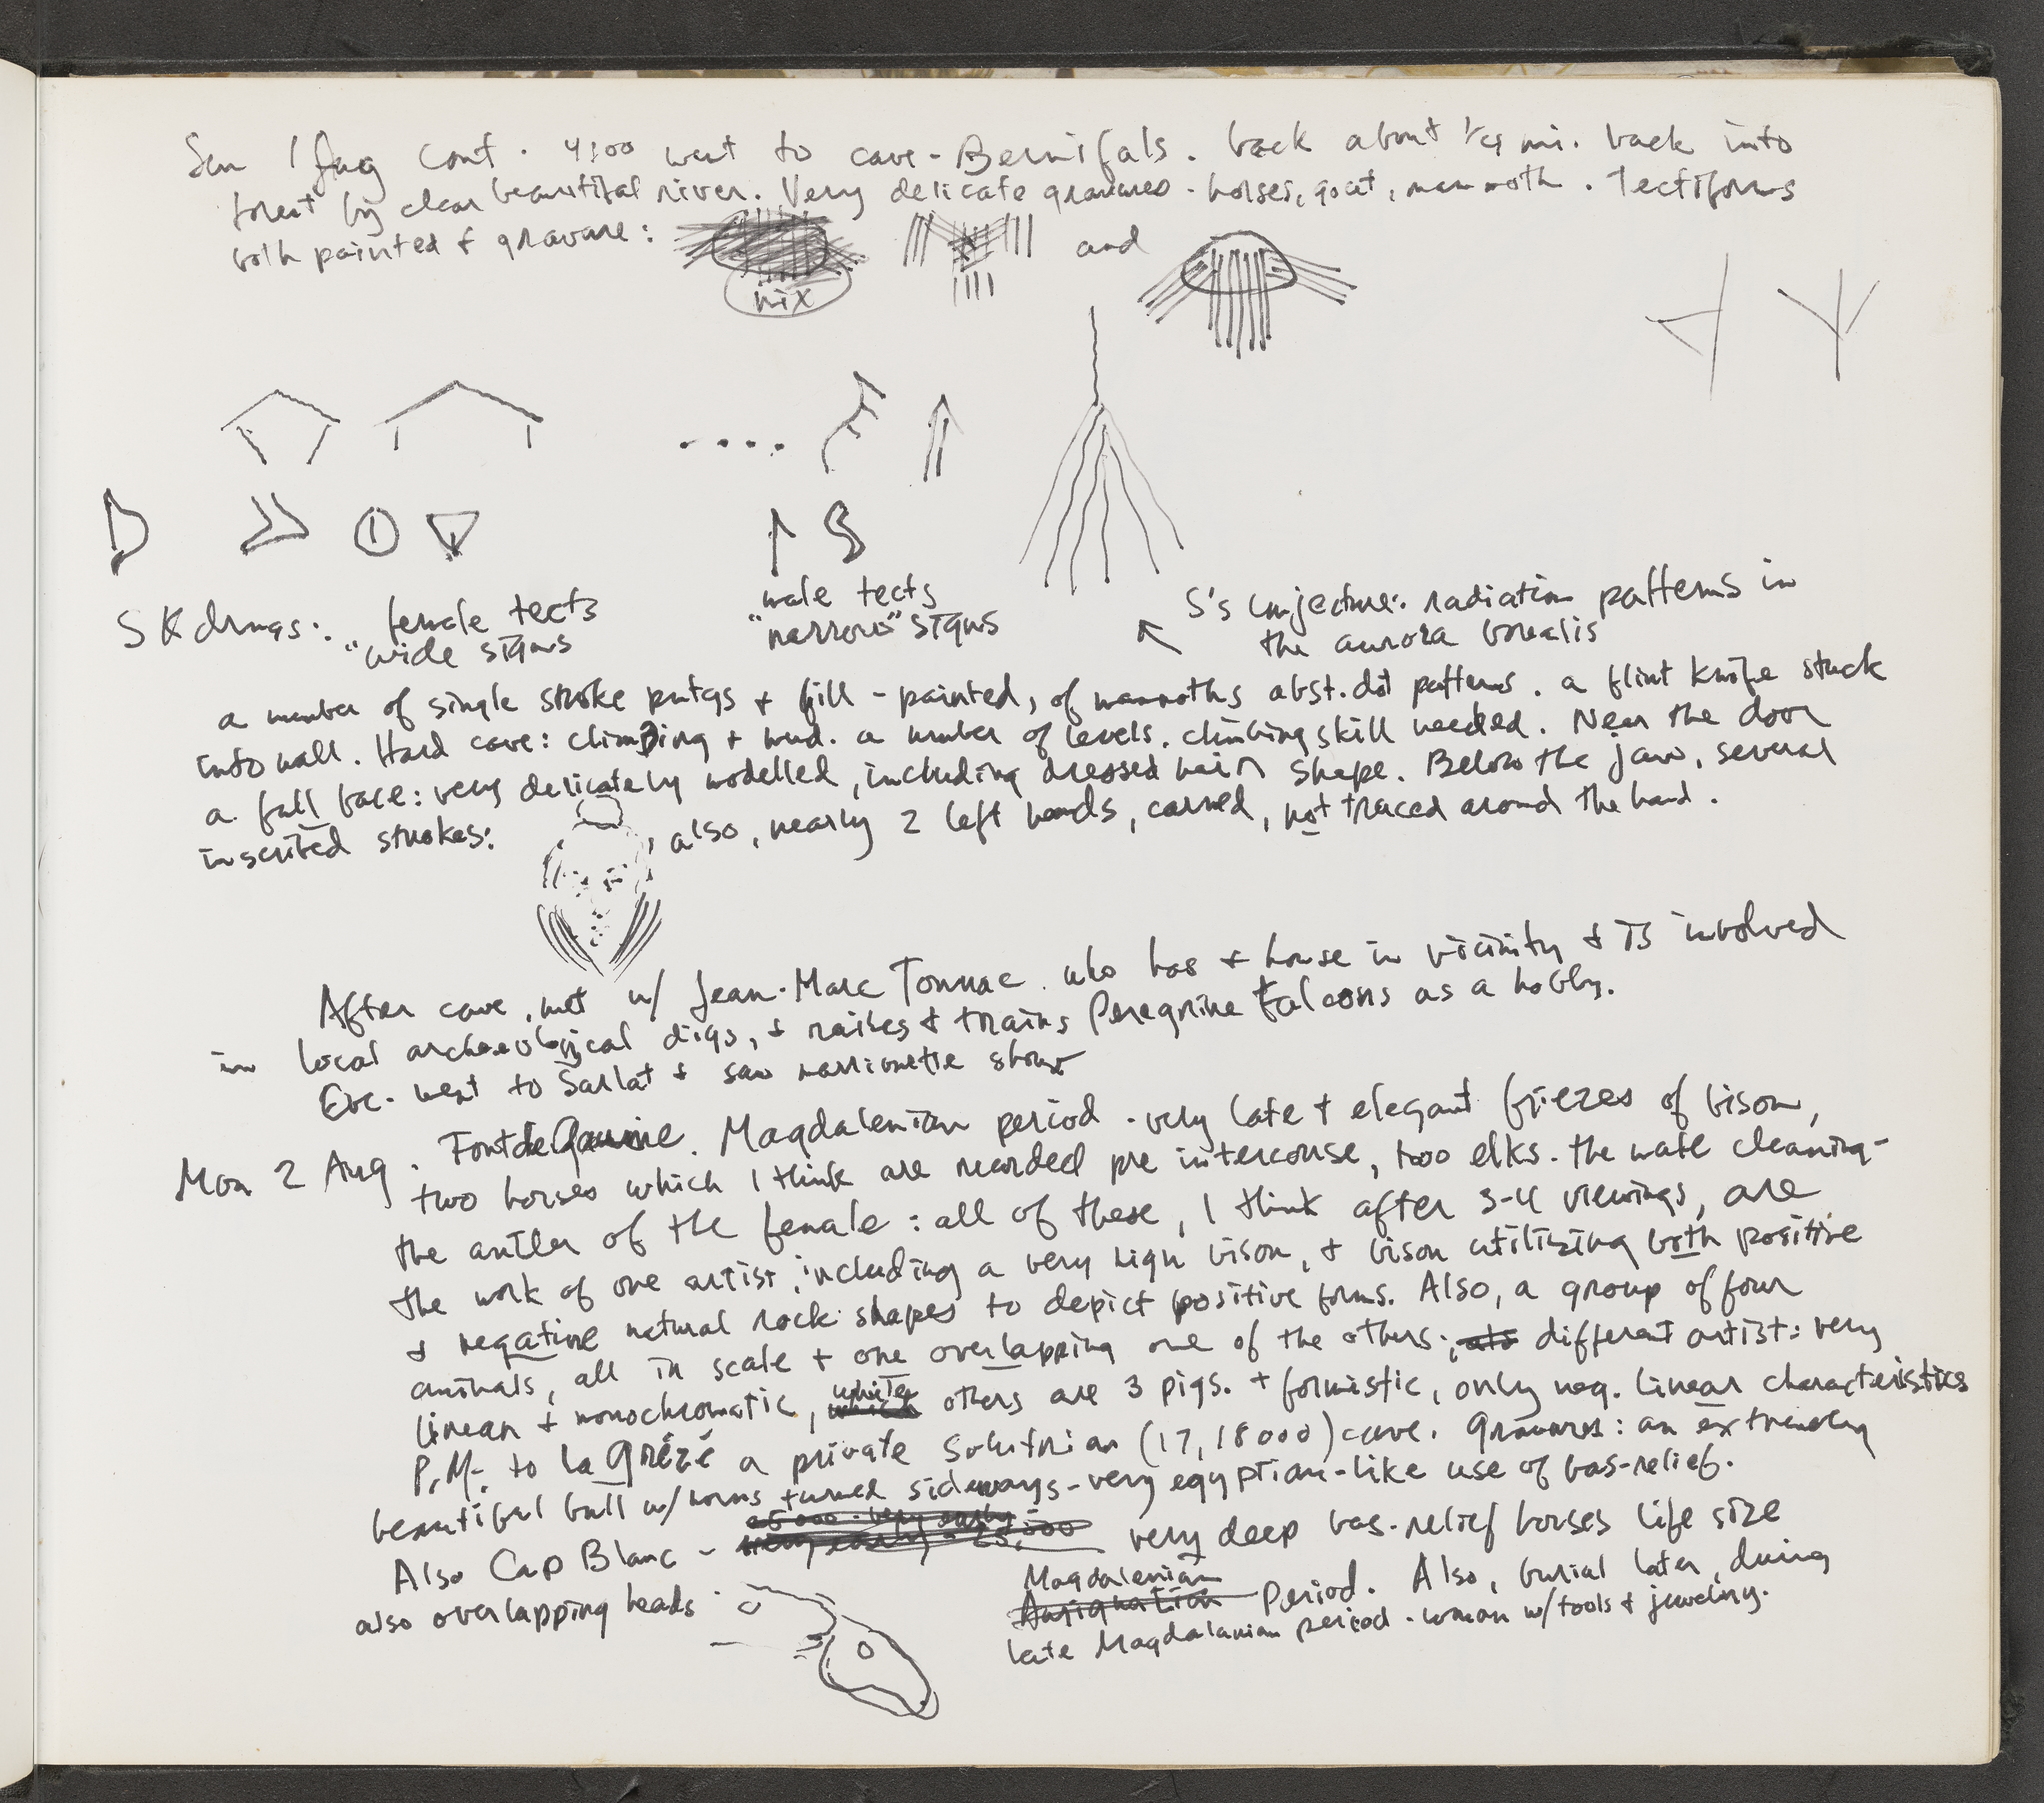 Sun 1 Aug Cont. 4:00 went to cave-Bernifals. back about 1/4 mi. back into
forest by clear beautiful river. Very delicate gravures - horses, goat, mammoth. Tectiforms
both painted & gravure:
and
nix
S K drwgs: female tects
"wide signs
male tects
"narrow" signs
S's conjecture: radiation patterns in
the aurora borealis
a number of single stroke pntgs & fill-painted, of mammoths abst. dot patterns. a flint knife stuck
into wall. Hard cave: climbing & mud. a number of levels. climbing skill needed. Near the door
a full face: very delicately modelled, including dressed hair shape. Below the jaw, several
inscribed strokes: , also, nearly 2 left hands, carved, not traced around the hand.
After cave, met w/ Jean-Marc Tonnac who has a house in vicinity & is involved
in local archaeological digs, & raises & trains Peregrine Falcons as a hobby.
Eve. went to Sarlat & saw marrionette show
Mon 2 Aug. Font de Gaume. Magdalenian period - very late & elegant friezes of bison,
two horses which I think are recorded pre intercourse, two elks. the male cleaning
the antler of the female: all of these, I think after 3-4 viewings, are
the work of one artist, including a very high bison, & bison utilizing both positive
& negative natural rock shapes to depict positive forms. Also, a group of four
animals, all in scale & one overlapping one of the others; different artist: very
linear & monochromatic, while others are 3 pigs. & formistic, only neg. linear characteristics
P.M. to la Grèzé a private Solutrian (17, 18000) cave. Gravures: an extremely
beautiful bull w/ horns turned sideways - very egyptian-like use of bas-relief.
Also Cap Blanc - very early - 25,000 very deep bas-relief horses life size
also overlapping heads
Magdalenian
Aurignatian Period. Also, burial later, during
late Magdalanian period - woman w/ tools & jewelry.